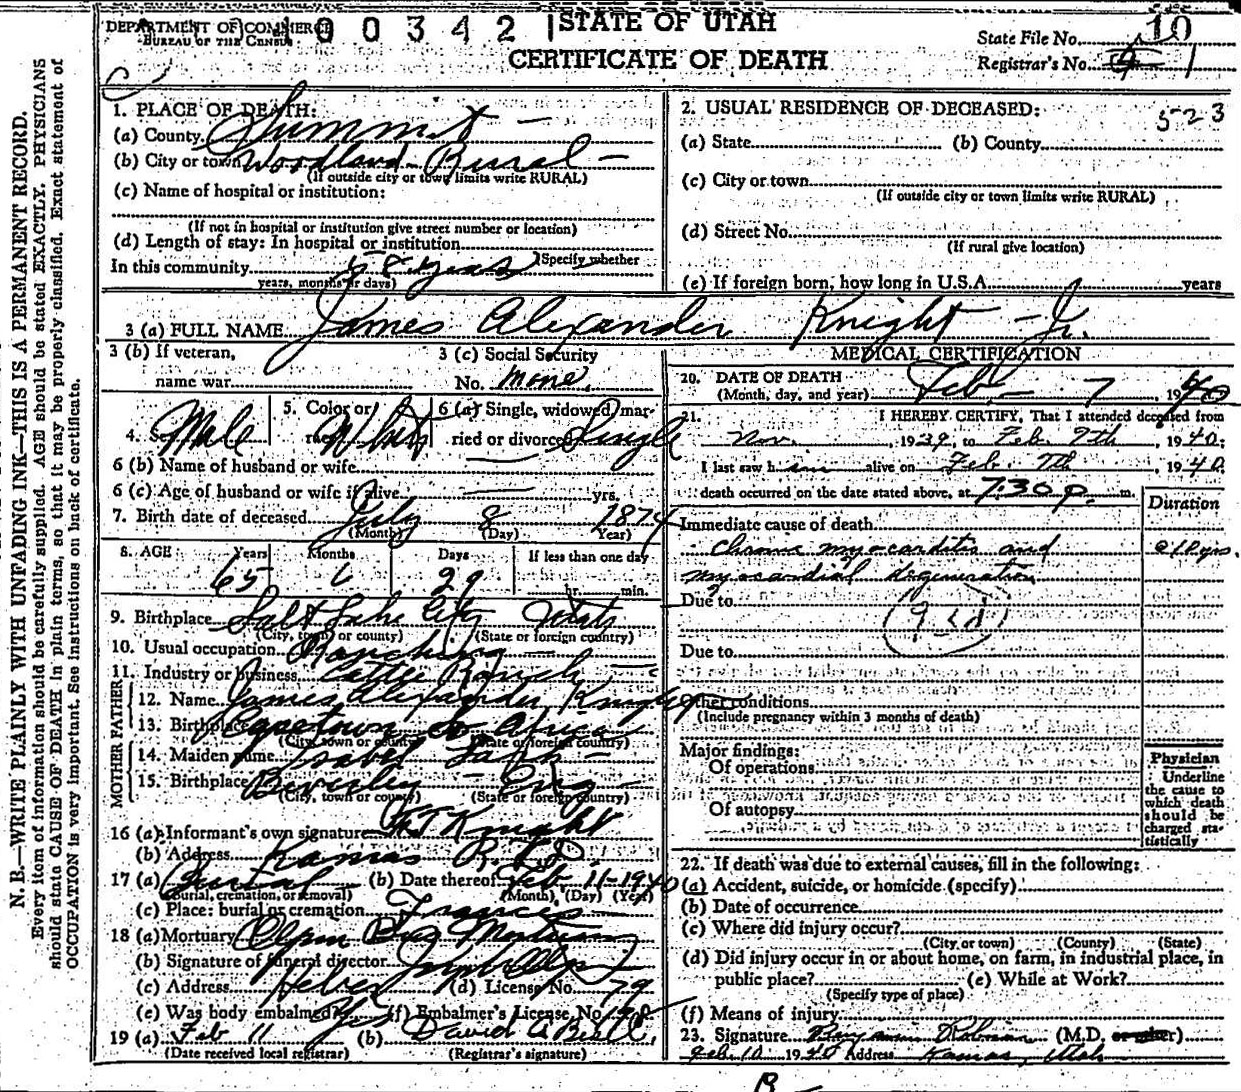 DEPARTMENT OF COMMERCE
BUREAU OF THE CENSUS
00342
STATE OF UTAH
CERTIFICATE OF DEATH
State File No. 10
Registrar's No. 1
N. B.—WRITE PLAINLY WITH UNFADING INK—THIS IS A PERMANENT RECORD.
Every item of information should be carefully supplied. AGE should be stated EXACTLY. PHYSICIANS
should state CAUSE OF DEATH in plain terms, so that it may be properly classified. Exact statement of
OCCUPATION is very important. See instructions on back of certificate.
1. PLACE OF DEATH:
(a) County Summit
(b) City or town Woodland - Rural
(If outside city or town limits write RURAL)
(c) Name of hospital or institution:
(If not in hospital or institution give street number or location)
(d) Length of stay: In hospital or institution
(Specify whether
In this community 58 years
years, months or days)
2. USUAL RESIDENCE OF DECEASED:
523
(a) State (b) County
(c) City or town
(If outside city or town limits write RURAL)
(d) Street No.
(If rural give location)
(e) If foreign born, how long in U.S.A. years
3 (a) FULL NAME James Alexander Knight - Jr.
3 (b) If veteran,
name war
3 (c) Social Security
No. none.
4. Sex Male
5. Color or
race White
6 (a) Single, widowed, mar-
ried or divorced Single
6 (b) Name of husband or wife
6 (c) Age of husband or wife if alive yrs.
7. Birth date of deceased July 8 1874
(Month) (Day) (Year)
8. AGE Years Months Days If less than one day
65 6 29 hr. min.
9. Birthplace Salt Lake City Utah
(City, town or county) (State or foreign country)
10. Usual occupation Ranching
11. Industry or business Cattle Ranch
FATHER
12. Name James Alexander Knight
13. Birthplace Capetown So Africa
(City, town or county) (State or foreign country)
MOTHER
14. Maiden name Isabel
15. Birthplace Beverley Eng
(City, town or county) (State or foreign country)
16 (a) Informant's own signature Knight
(b) Address Kamas R.F.D.
17 (a) Burial (b) Date thereof Feb 11-1940
(Burial, cremation, or removal) (Month) (Day) (Year)
(c) Place: burial or cremation Frances
18 (a) Mortuary Olpin Bros Mortuary
(b) Signature of funeral director
(c) Address Heber (d) License No. 79
(e) Was body embalmed? Yes (f) Embalmer's License No.
19 (a) Feb 11 (b) David A
(Date received local registrar) (Registrar's signature)
MEDICAL CERTIFICATION
20. DATE OF DEATH
(Month, day, and year) Feb - 7, 1940
21. I HEREBY CERTIFY, That I attended deceased from
Nov. , 1939, to Feb. 7th , 1940;
I last saw him alive on Feb. 7th , 1940
death occurred on the date stated above, at 7:30 p. m.
Duration
Immediate cause of death
chronic myocarditis and
myocardial degeneration
10 yrs.
Due to
Due to
Other conditions
(Include pregnancy within 3 months of death)
Major findings:
Of operations
Of autopsy
Physician
Underline
the cause to
which death
should be
charged sta-
tistically
22. If death was due to external causes, fill in the following:
(a) Accident, suicide, or homicide (specify)
(b) Date of occurrence
(c) Where did injury occur?
(City or town) (County) (State)
(d) Did injury occur in or about home, on farm, in industrial place, in
public place? (e) While at Work?
(Specify type of place)
(f) Means of injury
23. Signature (M.D. or other)
Feb. 10 1940 Address Kamas, Utah